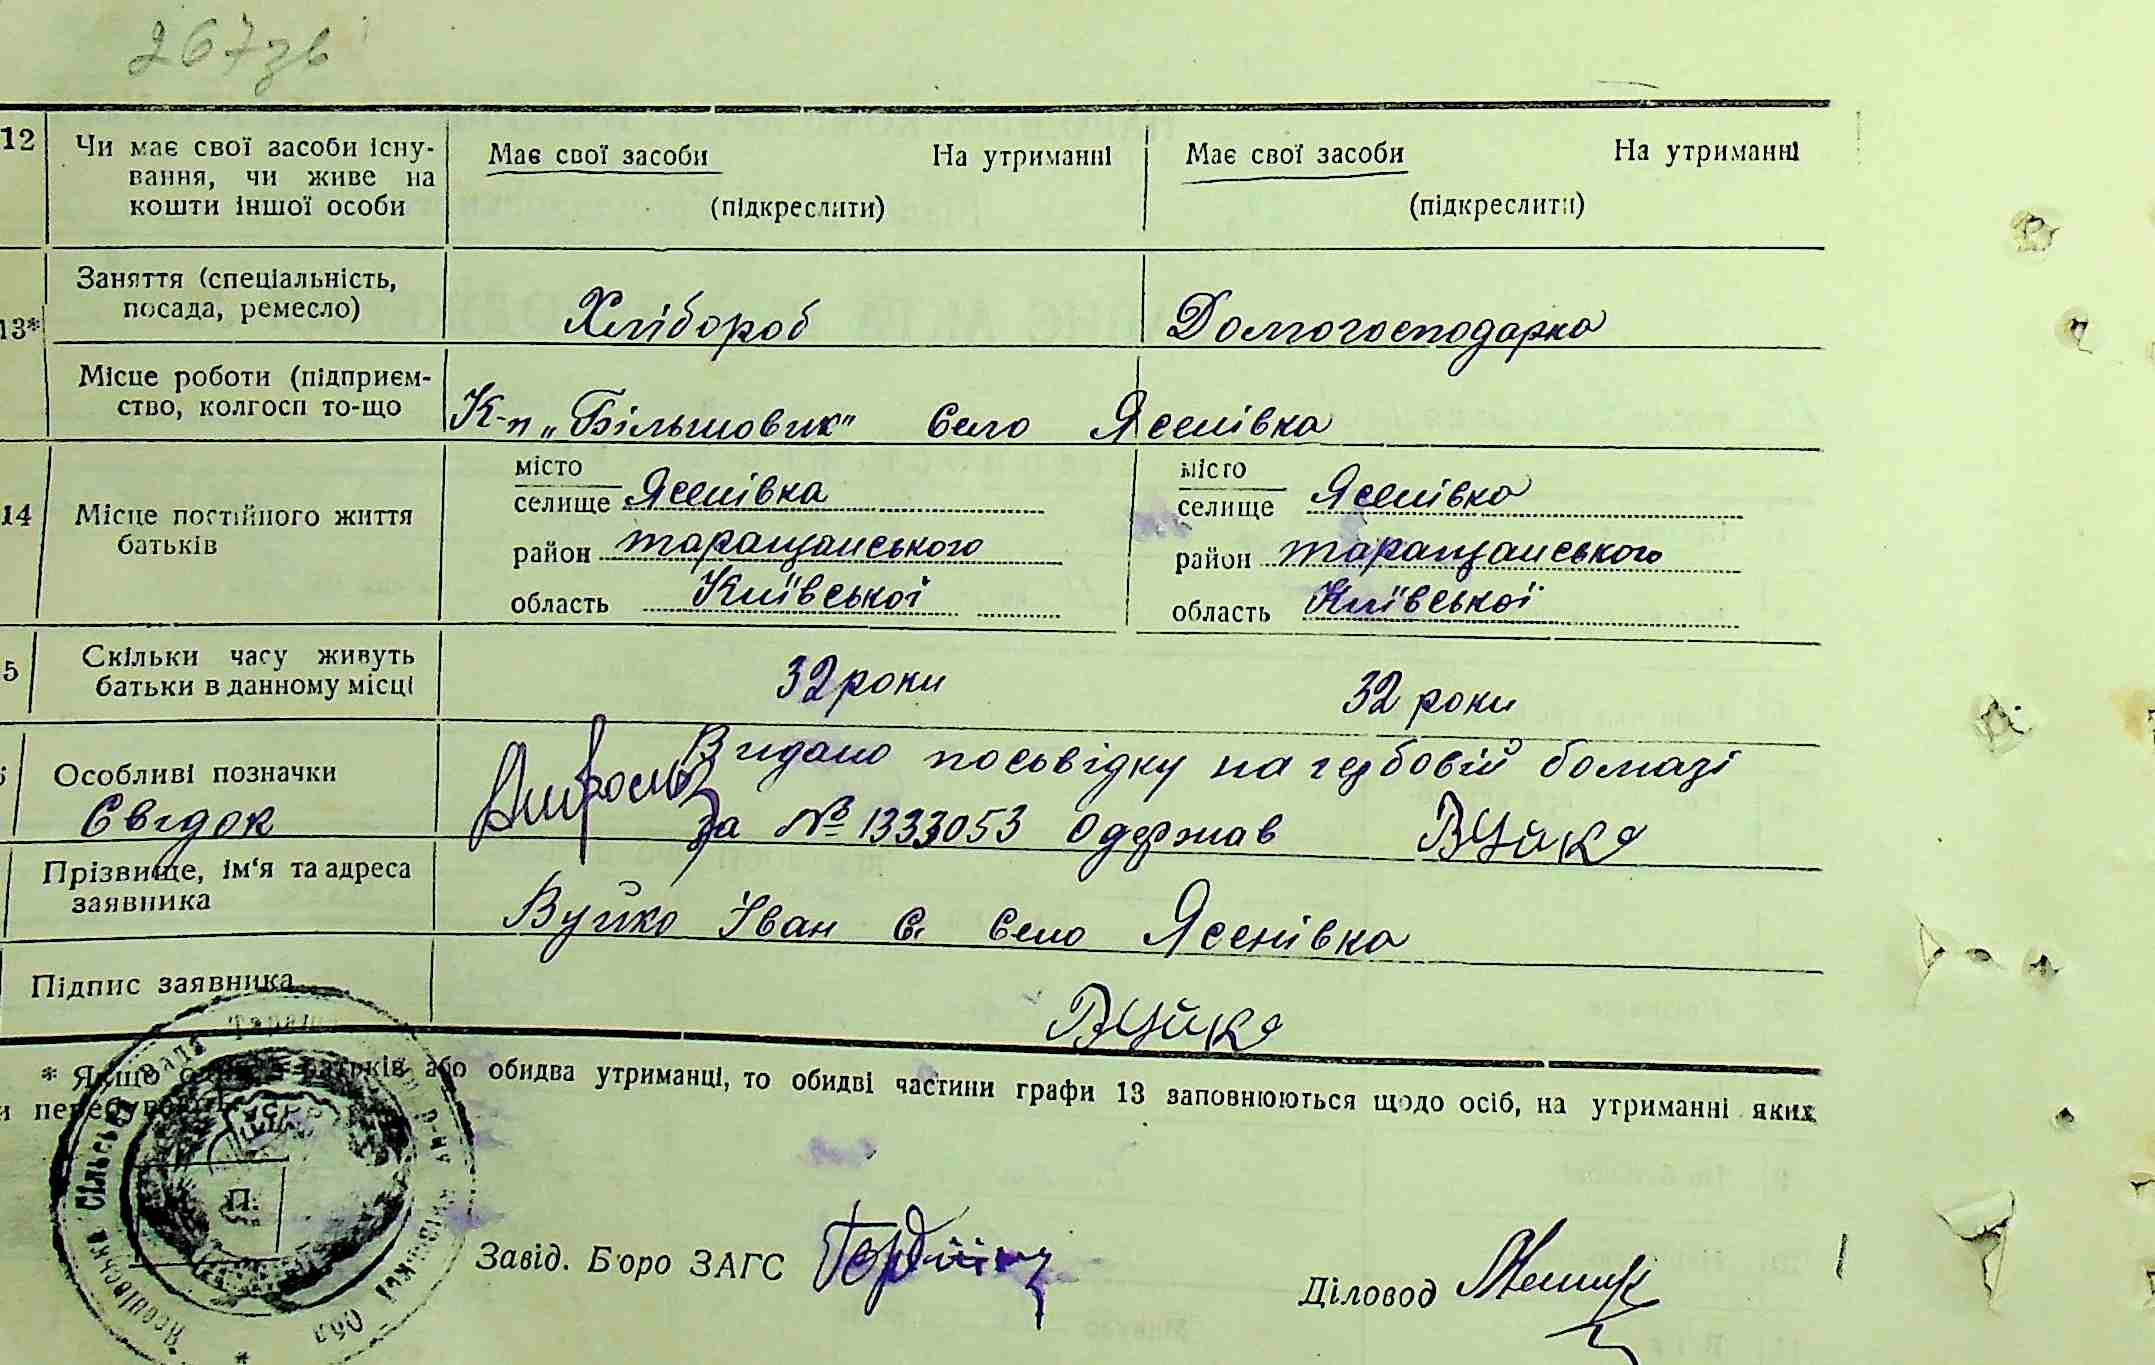 267зв
12
Чи має свої засоби існу-
вання, чи живе на
кошти іншої особи
Має свої засоби На утриманні
(підкреслити)
Має свої засоби На утриманні
(підкреслити)
13*
Заняття (спеціальність,
посада, ремесло)
Хлібороб
Домогосподарка
Місце роботи (підприєм-
ство, колгосп то-що
К-п „Більшовик" село Ясенівка
14
Місце постійного життя
батьків
місто
селище Ясенівка
район таращанського
область Київської
місто
селище Ясенівка
район таращанського
область Київської
5
Скільки часу живуть
батьки в данному місці
32 роки
32 роки
Особливі позначки
Свідок
Видано посьвідку на гербовій бомазі
за № 1333053 одержав Вуйко
Прізвище, ім'я та адреса
заявника
Вуйко Іван Є. село Ясенівка
Підпис заявника
Вуйко
* Якщо батьків або обидва утриманці, то обидві частини графи 13 заповнюються щодо осіб, на утриманні яких
и перебув
Ясенівська Сільська Рада Таращ р-ну Київської Обл
П.
Завід. Б'юро ЗАГС
Діловод